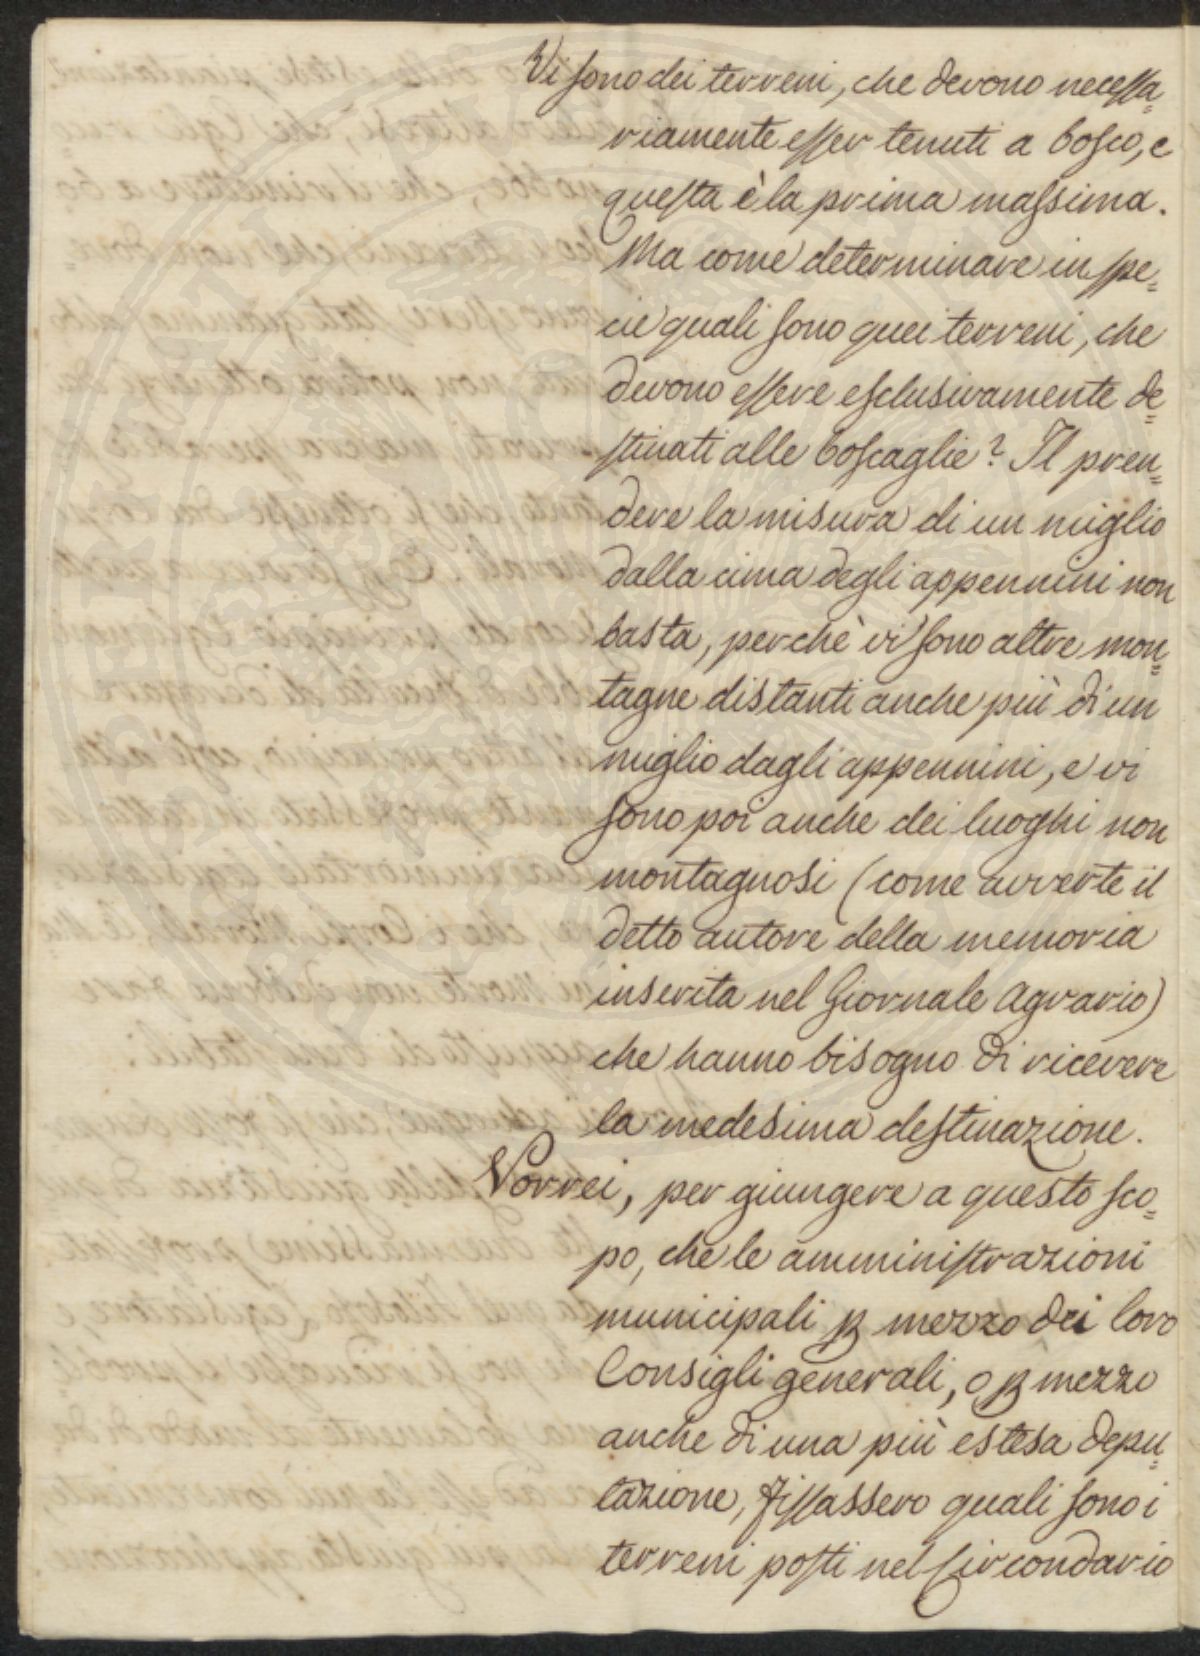 Vi sono dei terreni, che devono necessa=
riamente esser tenuti a bosco, e
questa è la prima massima.
Ma come determinare in spe=
cie quali sono quei terreni, che
devono essere esclusivamente de=
stinati alle boscaglie? Il pren=
dere la misura di un miglio
dalla cima degli appennini non
basta, perchè vi sono altre mon=
tagne distanti anche più di un
miglio dagli appennini, e vi
sono poi anche dei luoghi non
montagnosi (come avverte il
detto autore della memoria
inserita nel Giornale Agrario)
che hanno bisogno di ricevere
la medesima destinazione.
Vorrei, per giungere a questo sco=
po, che le amministrazioni
municipali p mezzo dei loro
Consigli generali, o p mezzo
anche di una più estesa depu=
tazione, fissassero quali sono i
terreni posti nel Circondario